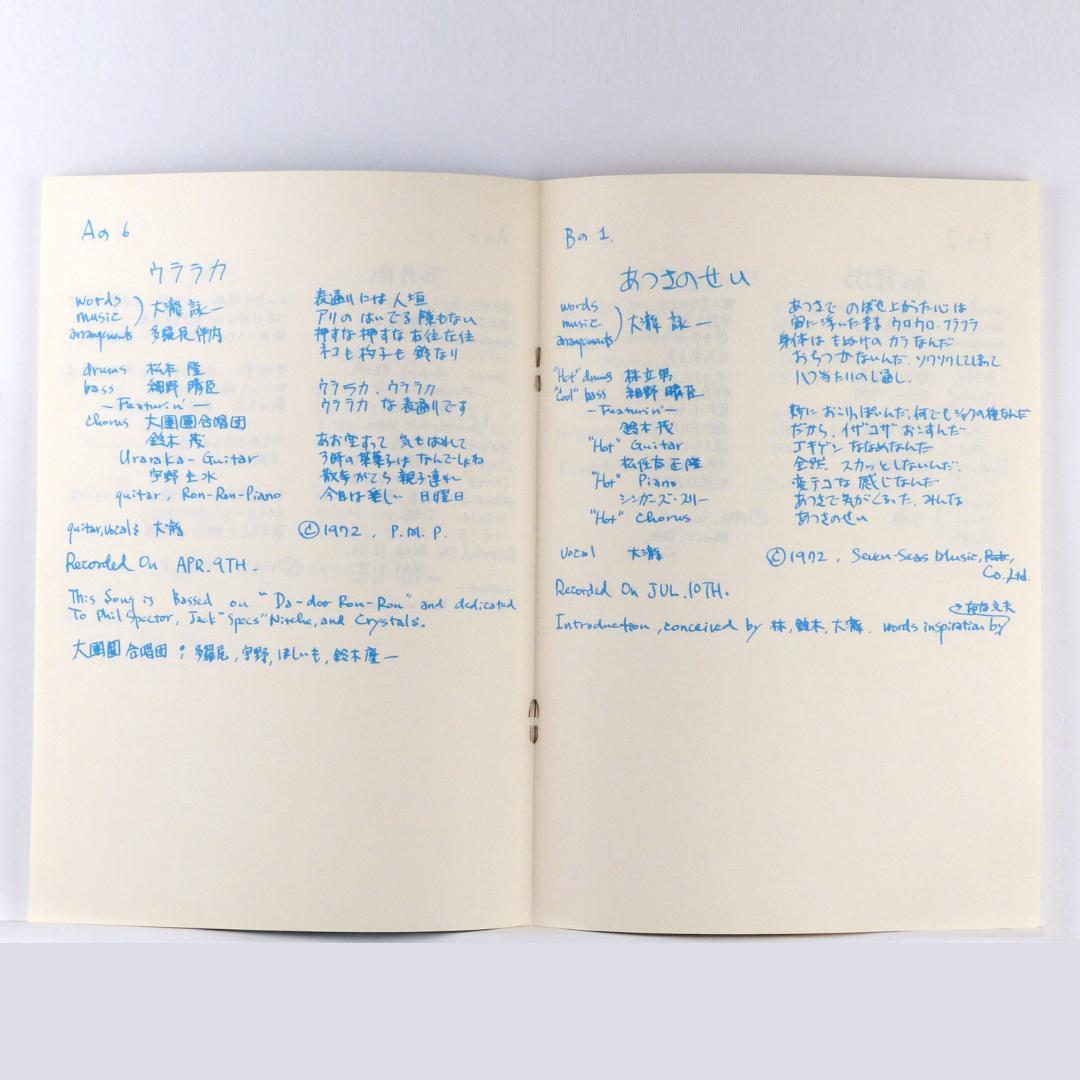 Aの6
ウララカ
words
music
arrangements
大瀧詠一
多羅尾伴内
drums 松本隆
bass 細野晴臣
—Featurin'—
chorus 大團圓合唱団
鈴木茂
Uraraka-Guitar
宇野主水
guitar, Ron-Ron-Piano
guitar, vocals 大瀧
表通りには人垣
アリのはいでる隙もない
押すな押すな右往左往
ネコも杓子も鈴なり
ウララカ、ウララカ
ウララカな表通りです
あお空すって 気もはれて
3時の茶菓子はなんでしょね
散歩がてら 親子連れ
今日は楽しい 日曜日
©1972, P.M.P.
Recorded On APR.9TH.
This Song is Bassed on "Da-doo Ron-Ron" and dedicated
To Phil Spector, Jack "Specs" Nitche, and Crystals.
大團圓合唱団; 多羅尾, 宇野, ほしいも, 鈴木慶一
Bの1.
あつさのせい
words
music
arrangements
大瀧詠一
"Hot" drums 林立男
"Cool" bass 細野晴臣
—Featurin'—
鈴木茂
"Hot" Guitar
松任谷正隆
"Hot" Piano
シンガーズ・スリー
"Hot" chorus
vocal 大瀧
あつさで のぼせ上がった心は
宙に浮いたまま ウロウロ、フラフラ
身体はもぬけの カラなんだ
おちつかないんだ、ソワソワしてしまって
八ツ当たりのし通し.
おこりっぽいんだ、何でもシャクの種なんだ
だから、イザコザ おこすんだ
ゴキゲン ななめなんだ
全然、スカッとしないんだ、
変テコな 感じなんだ
あつさで気がくるった、みんな
あつさのせい
©1972, Seven-Seas Music,
Co.Ltd.
Recorded On JUL.10TH.
Introduction, conceived by 林, 鈴木, 大瀧. words inspiration by